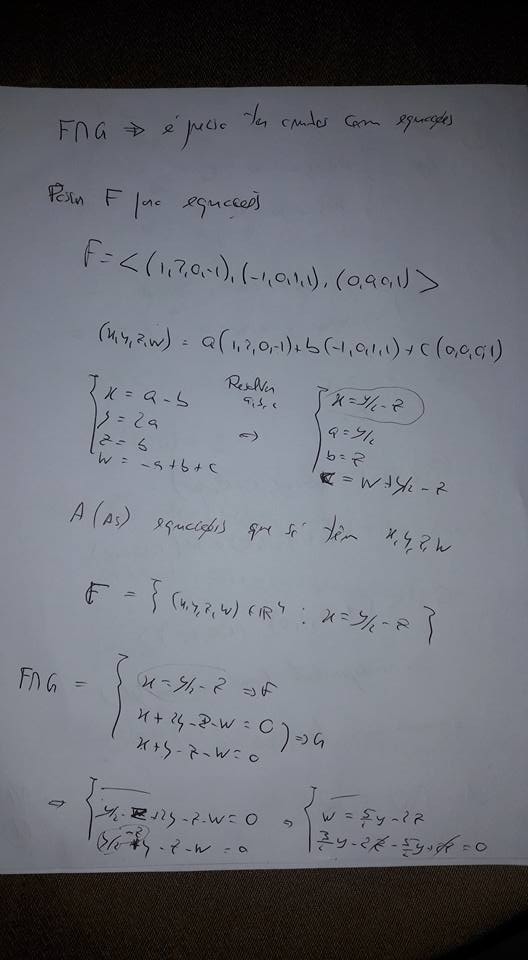 F∩G ⇒ é preciso ter ambos com equações
Passar F para equações
F = < (1,2,0,-1), (-1,0,1,1), (0,0,0,1) >
(x,y,z,w) = a(1,2,0,-1)+b(-1,0,1,1)+c(0,0,0,1)
{ x = a-b Resolver a,b,c { x = y/2 - z
y = 2a ⇔ a = y/2
z = b b = z
w = -a+b+c c = w + y/2 - z
A (As) equações que só têm x,y,z,w
F = { (x,y,z,w) ∈ ℝ⁴ : x = y/2 - z }
F∩G = { x = y/2 - z ⇒ F
x + 2y - z - w = 0 ) ⇒ G
x + y - z - w = 0
⇒ { y/2 - z + 2y - z - w = 0 ⇒ { w = 5/2 y - 2z
y/2 - z + y - z - w = 0 3/2 y - 2z - 5/2 y + 2z = 0